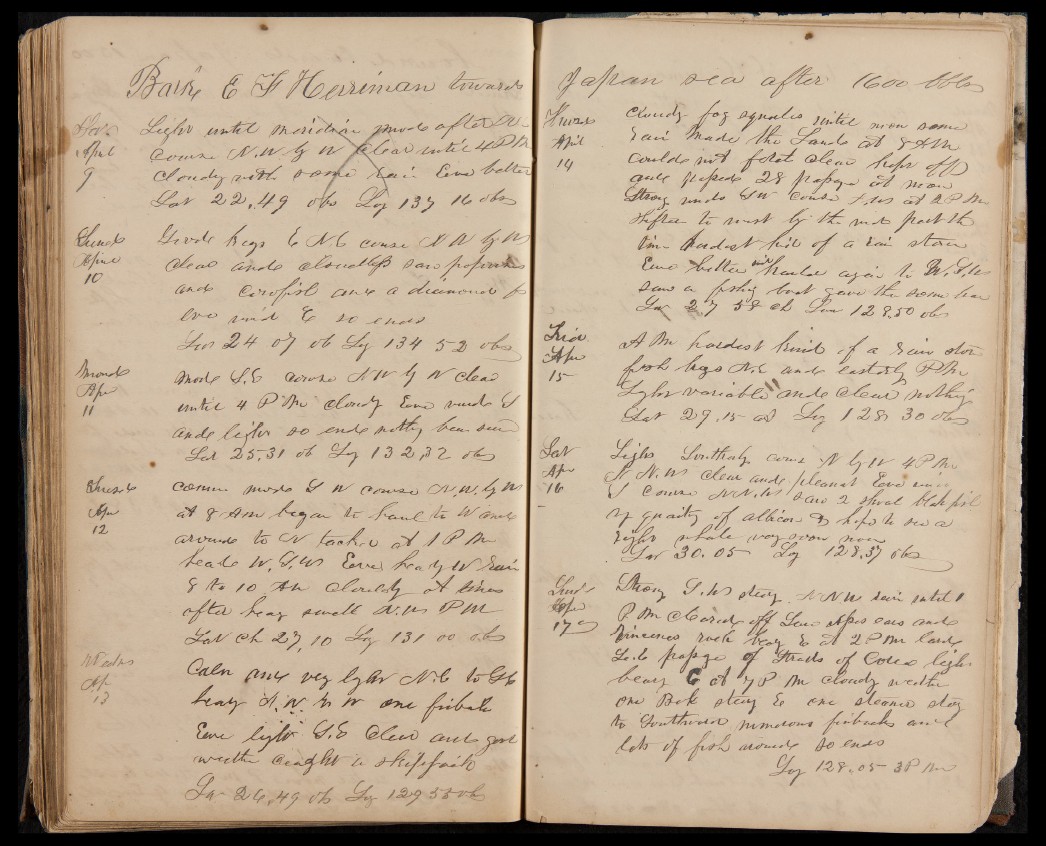 Bark E F Herriman towards
Satr
April
9
Light until meridian made after
Course N.W. by W clear until 4 PM
Cloudy with some rain Eve better
Lat 22,49 obs Log 137 16 obs
Sund
April
10
Livele brgs E N.E course N W by W
Clear and cloudless saw
and and a
eve wind E so ends
Lat 24 07 ob Log 134 52 obs
Mond
Apr
11
Mode S.E course N W by W clear
until 4 P M cloudy Eve winds S
and light so ends nothing been seen
Lat 25.31 ob Log 132,32 obs
Tuesd
Apr
12
comm mode S W course N.W. by W
at 8 AM began to haul to W and
around to N tacked at 1 P M
heads W.S.W Eve heavy W rain
8 to 10 AM cloudy at times
after heavy swell N.W. P M
Lat Ch 27,10 Log 131 00 obs
Weds
Ap
13
Calm and very light N.E to S E
heavy N.W. to W one finback
Eve light S.E Clear and good
weather caught a skipjack
La 26,49 ob Log 129 55 ob
Japan sea after 1600 bbls
Thursd
April
14
Cloudy fog squalls until noon some
rain made the Lands at 8 AM
could not fetch clear kept off
and passed 28 passage at noon
Strong winds S W course N W at 2 P M
shifted to west by the
time hardest kind of a rain storm
Eve better wind hauled again to W.S.W
saw a fishing boat gave them some bread
La 27 58 ch Lon 128,50 obs
Frid
Apr
15
A M hardest kind of a rain storm
fresh brgs N.E and easterly P M
Light variable and clear nothing
Lat 29,15 ad Log 128 30 obs
Sat
Apr
16
Light Southerly course N by W 4 P M
N.N.W clear and pleasant Eve wind
S Course N.N.W saw 2 shoal blackfish
by quantity of albicore & hope to see a
right whale very soon now
Lat 30.05 Log 128,37 obs
Sund
Apr
17
Strong S.W steering N N W rain until 1
P M cleared off saw and
rock bearing E at 2 P M lands
passage of Straits of Corea light
bearing E at 7 P M cloudy weather
one Bark steering E one steamer steering
to Southward numerous finbacks and
lots of fish around so ends
Log 128.05 3 P M